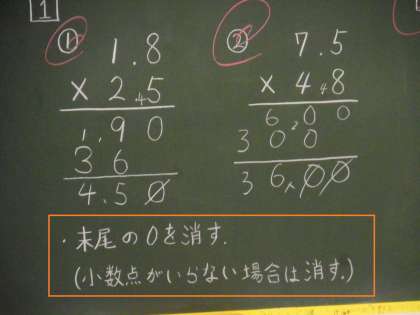 1
① 1.8 ② 7.5
× 2.5 × 4.8
1 9 0 6 0 0
3 6 3 0 0
4.5 0 3 6.0 0
・末尾の0を消す.
(小数点がいらない場合は消す.)